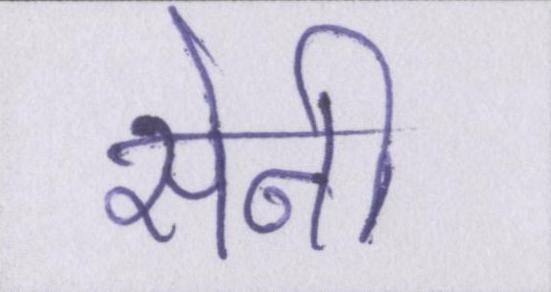 सेनी